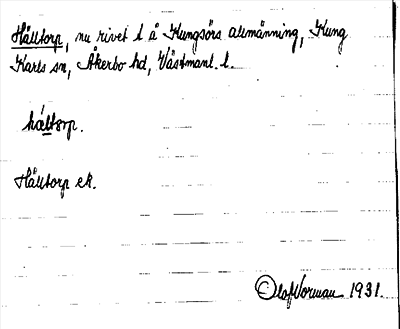 Hålltorp, nu rivet t å Kungsörs allmänning, Kung
Karls sn, Åkerbo hd, Västmanl. l.
hål̀torp.
Hålltorp ek.
Olof Vorman 1931.